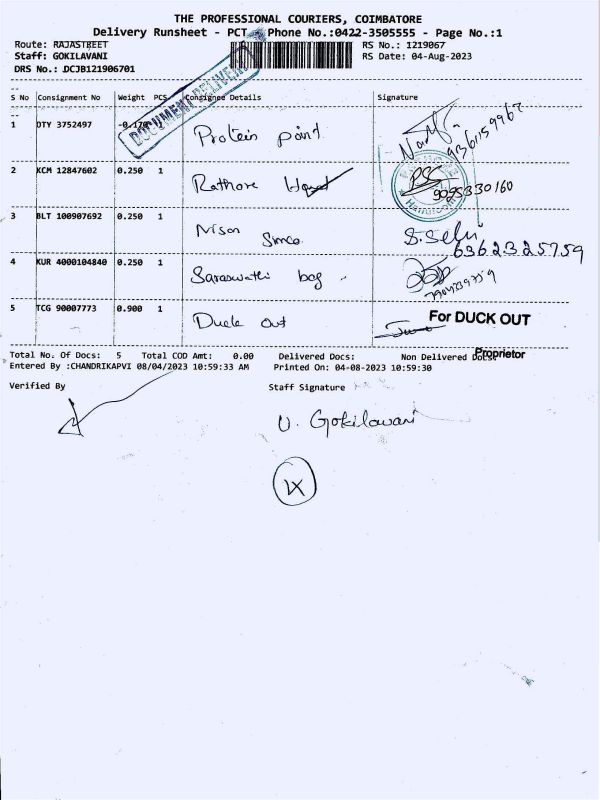 THE PROFESSIONAL COURIERS, COIMBATORE
Delivery Runsheet - PCT Phone No.:0422-3505555 - Page No.:1
Route: RAJASTREET RS No.: 1219067
Staff: GOKILAVANI RS Date: 04-Aug-2023
DRS No.: DCJB121906701
DOCUMENT DELIVERY
S No Consignment No Weight PCS Consignee Details Signature
1 DTY 3752497 Protein point 9361159962
2 KCM 12847602 0.250 1 Rathore 9025330160
3 BLT 100907692 0.250 1 Nison Simco S. Selvi
6362325759
4 KUR 4000104840 0.250 1 Saraswathi bag
5 TCG 90007773 0.900 1 Duck out For DUCK OUT
Proprietor
Total No. Of Docs: 5 Total COD Amt: 0.00 Delivered Docs: Non Delivered Docs:
Entered By :CHANDRIKAPVI 08/04/2023 10:59:33 AM Printed On: 04-08-2023 10:59:30
Verified By Staff Signature
U. Gokilavani